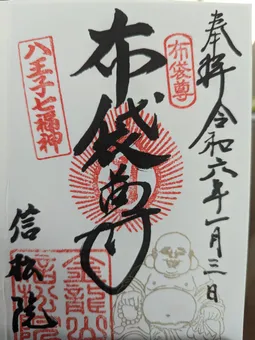 奉拝 令和六年一月三日
布袋尊
布袋尊
八王子七福神
信松院